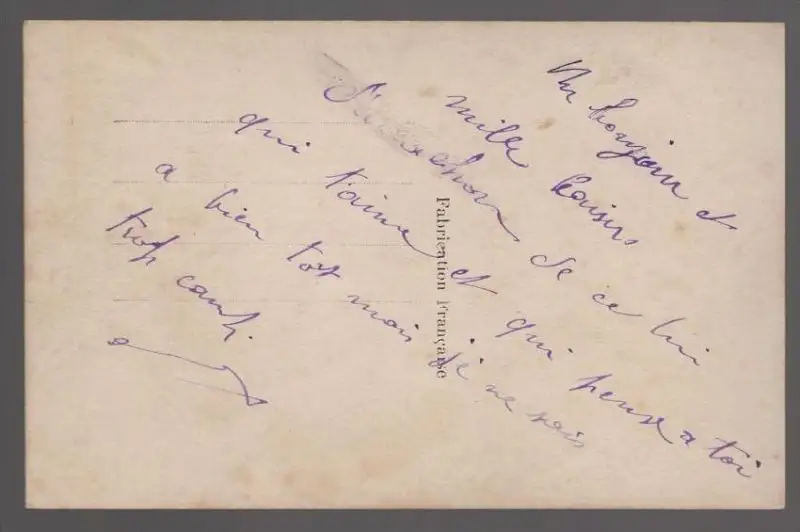 Un bonjour et
mille baisers
d'Arcachon de ce lui
qui t'aime et qui pense a toi
a bien tot mais je ne sais
trop
Fabrication Française